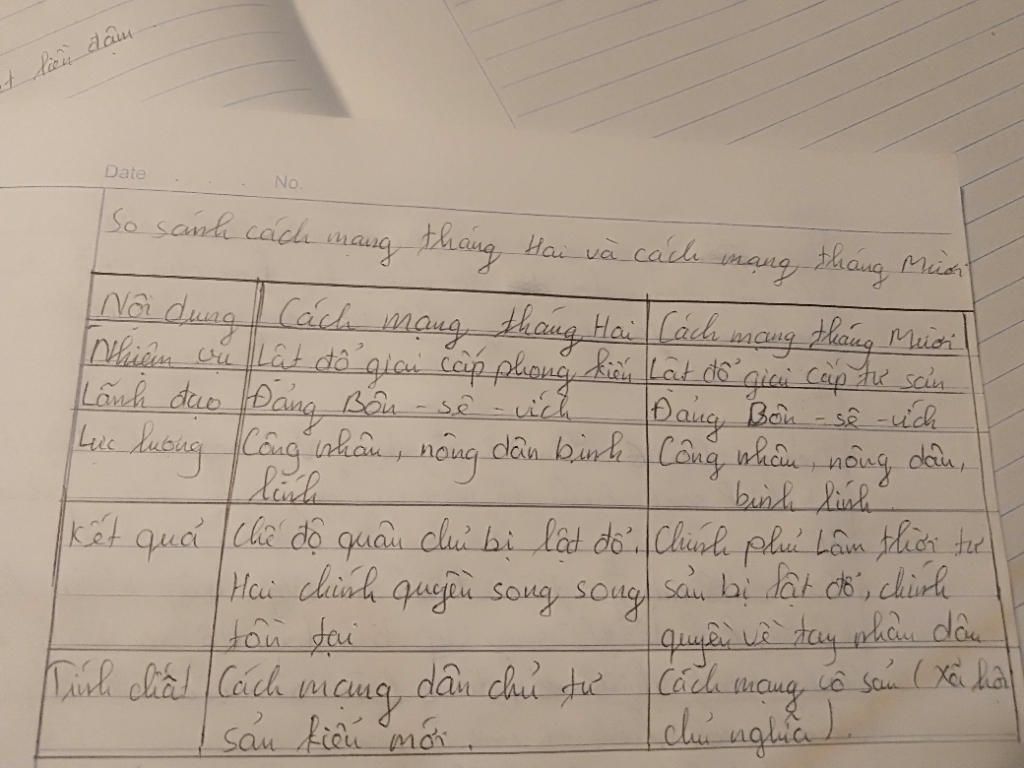 t liền đậm
Date . . . No.
So sánh cách mạng tháng Hai và cách mạng tháng Mười
Nội dung Cách mạng tháng Hai Cách mạng tháng Mười
Nhiệm vụ Lật đổ giai cấp phong kiến Lật đổ giai cấp tư sản
Lãnh đạo Đảng Bôn-sê-vích Đảng Bôn-sê-vích
Lực lượng Công nhân, nông dân binh Công nhân, nông dân,
lính binh lính
Kết quả Chế độ quân chủ bị lật đổ. Chính phủ Lâm thời tư
Hai chính quyền song song sản bị lật đổ, chính
tồn tại quyền về tay nhân dân
Tính chất Cách mạng dân chủ tư Cách mạng vô sản (Xã hội
sản kiểu mới. chủ nghĩa).